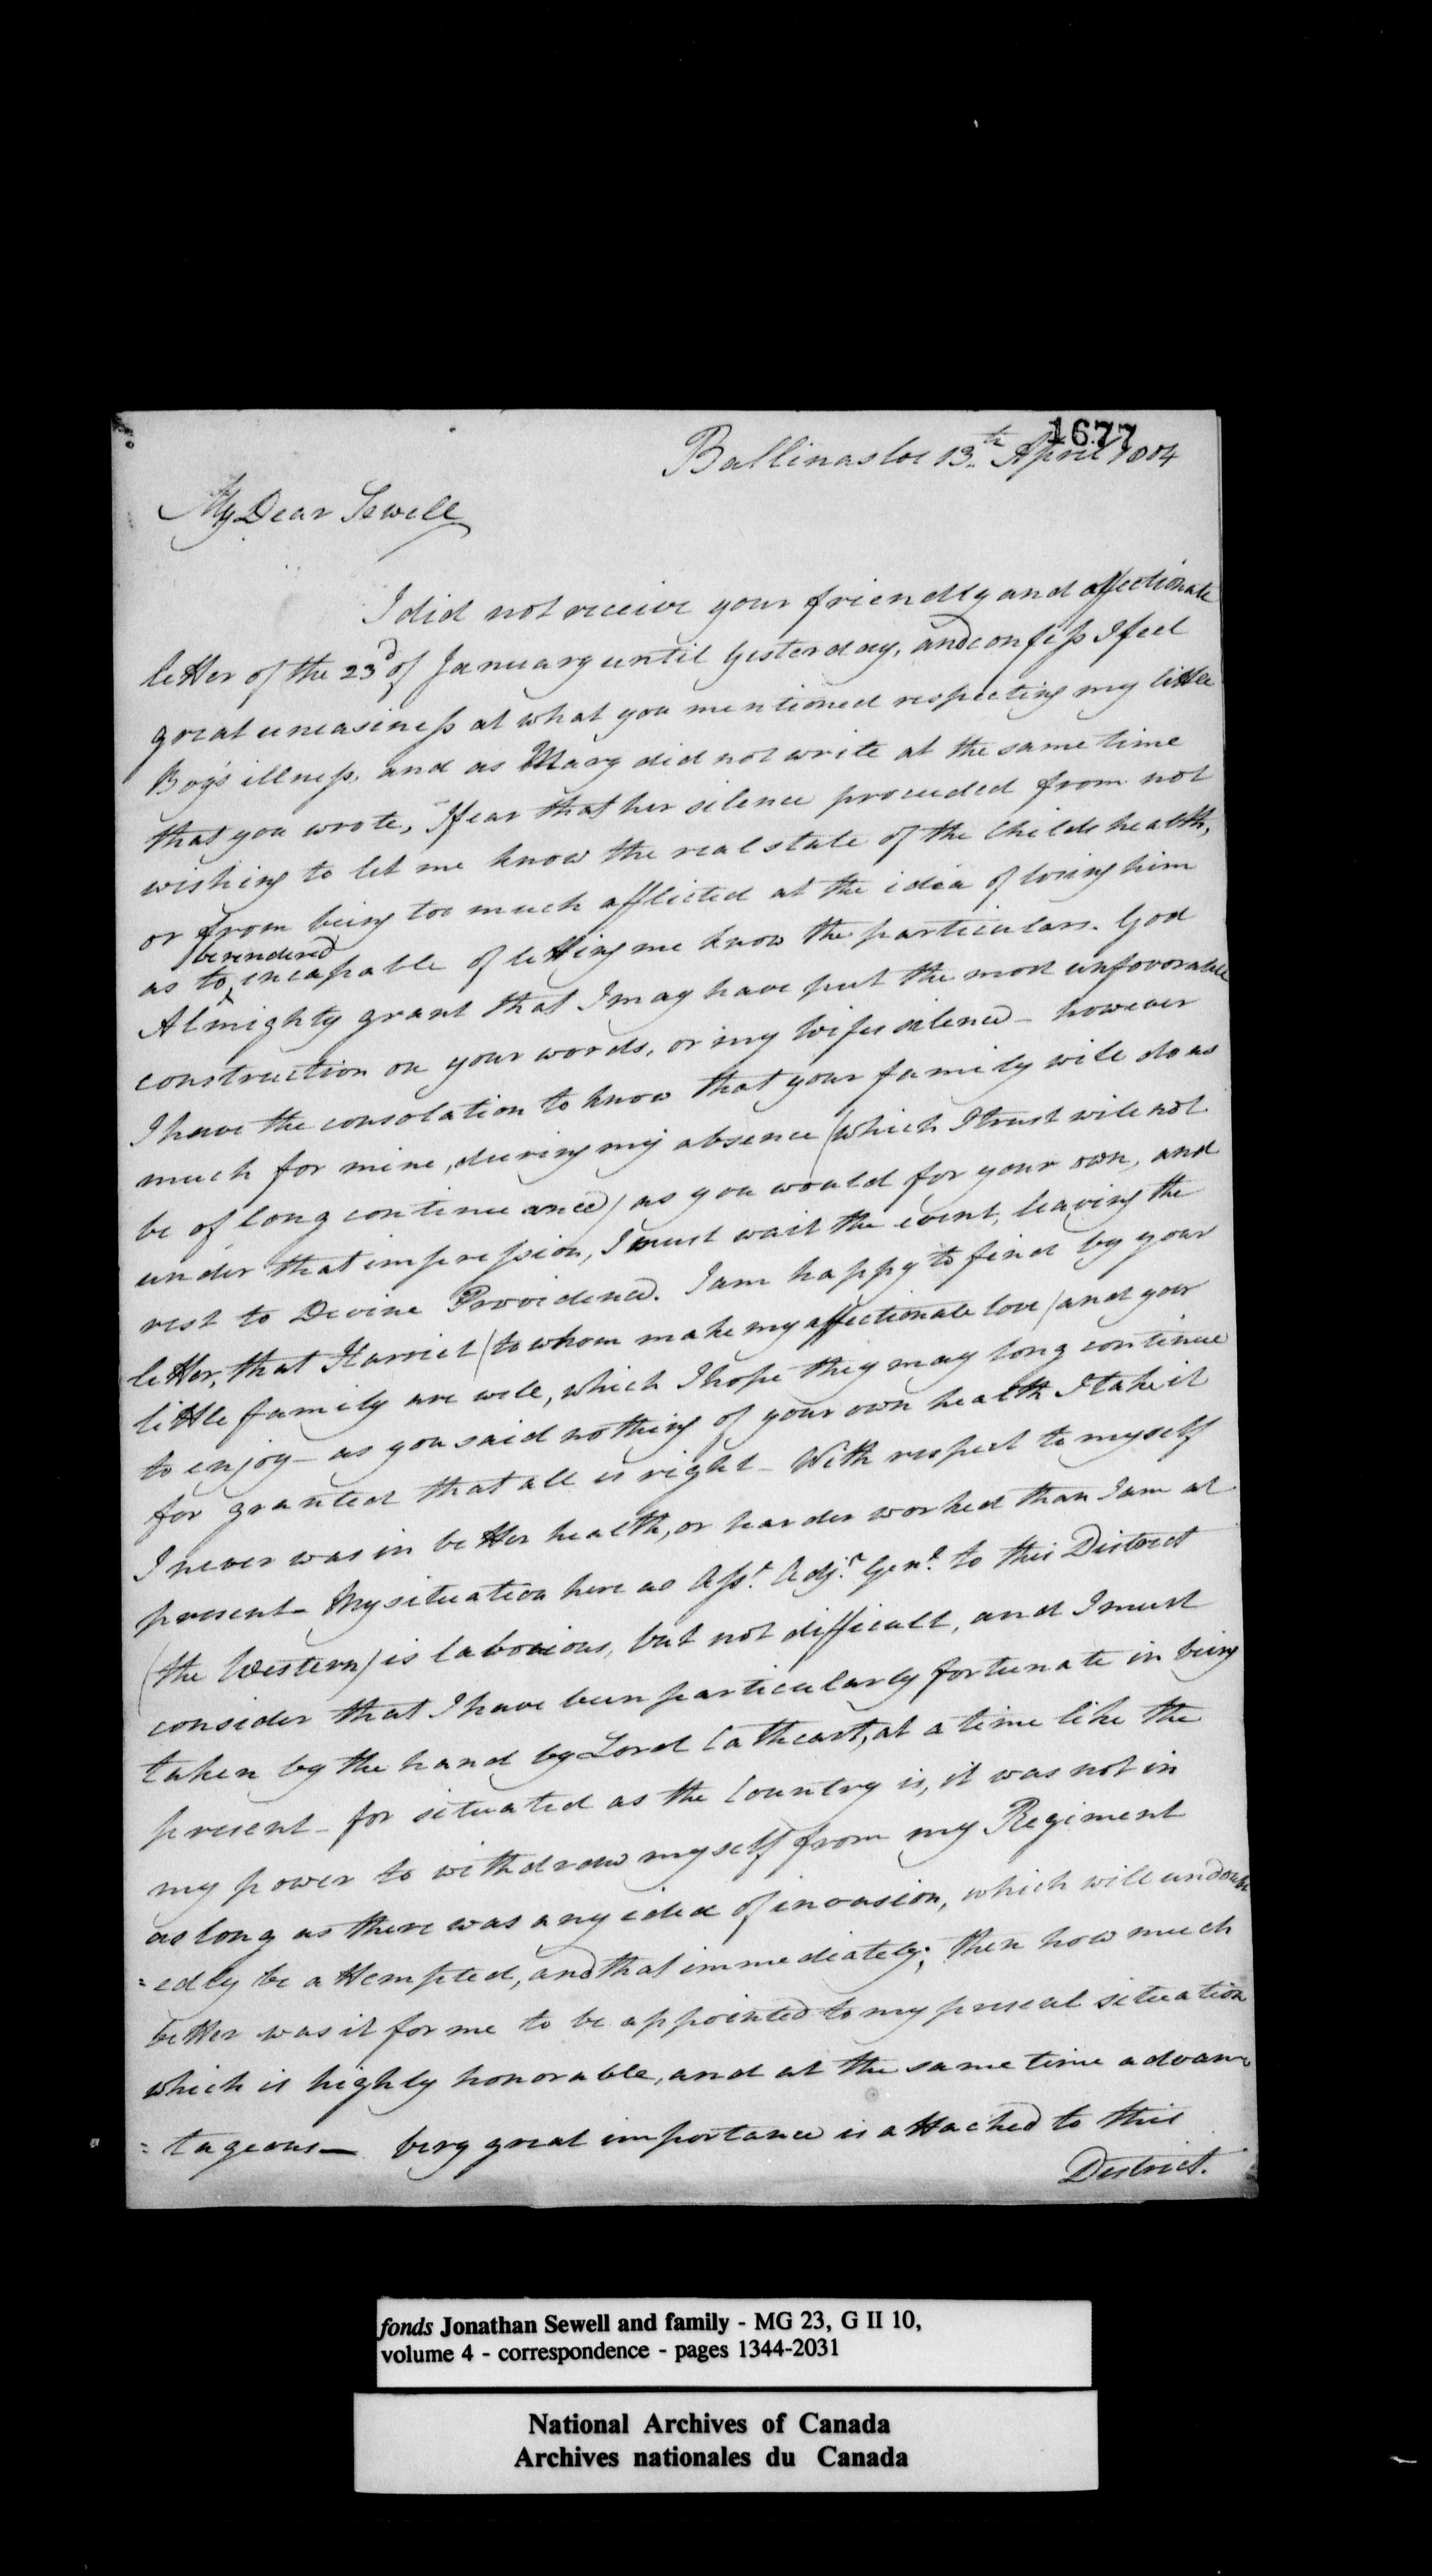 1677
Ballinasloe 13th April 1804
My Dear Sewell
I did not receive your friendly and affectionate
letter of the 23d of January until yesterday, and confess I feel
great uneasiness at what you mentioned respecting my little
Boy's illness, and as Mary did not write at the same time
that you wrote, I fear that her silence proceeded from not
wishing to let me know the real state of the Childs health,
or from being too much afflicted at the idea of losing him
be rendered
as to ^ incapable of letting me know the particulars. God
Almighty grant that I may have put the most unfavorable
construction on your words, or my Wifes silence – however
I have the consolation to know that your family will do as
much for mine, during my absence (which I trust will not
be of long continuance) as you would for your own, and
under that impression, I must wait the event, leaving the
rest to Devine Providence. I am happy to find by your
letter, that Harriet (to whom make my affectionate love) and your
little family are well, which I hope they may long continue
to enjoy – as you said nothing of your own health I take it
for granted that all is right – With respect to myself
I never was in better health, or harder worked than I am at
present – My situation here as Asst. Adjt. Genl. to this District
(the Western) is laborious, but not difficult, and I must
consider that I have been particularly fortunate in being
taken by the hand by Lord Cathcart, at a time like the
present – for situated as the Country is, it was not in
my power to withdraw myself from my Regiment
as long as there was any idea of invasion, which will undoubt
=edly be attempted, and that immediately; then how much
better was it for me to be appointed to my present situation
which is highly honorable, and at the same time advan
=tageous – Very great importance is attached to this
District.
fonds Jonathan Sewell and family - MG 23, G II 10,
volume 4 - correspondence - pages 1344-2031
National Archives of Canada
Archives nationales du Canada